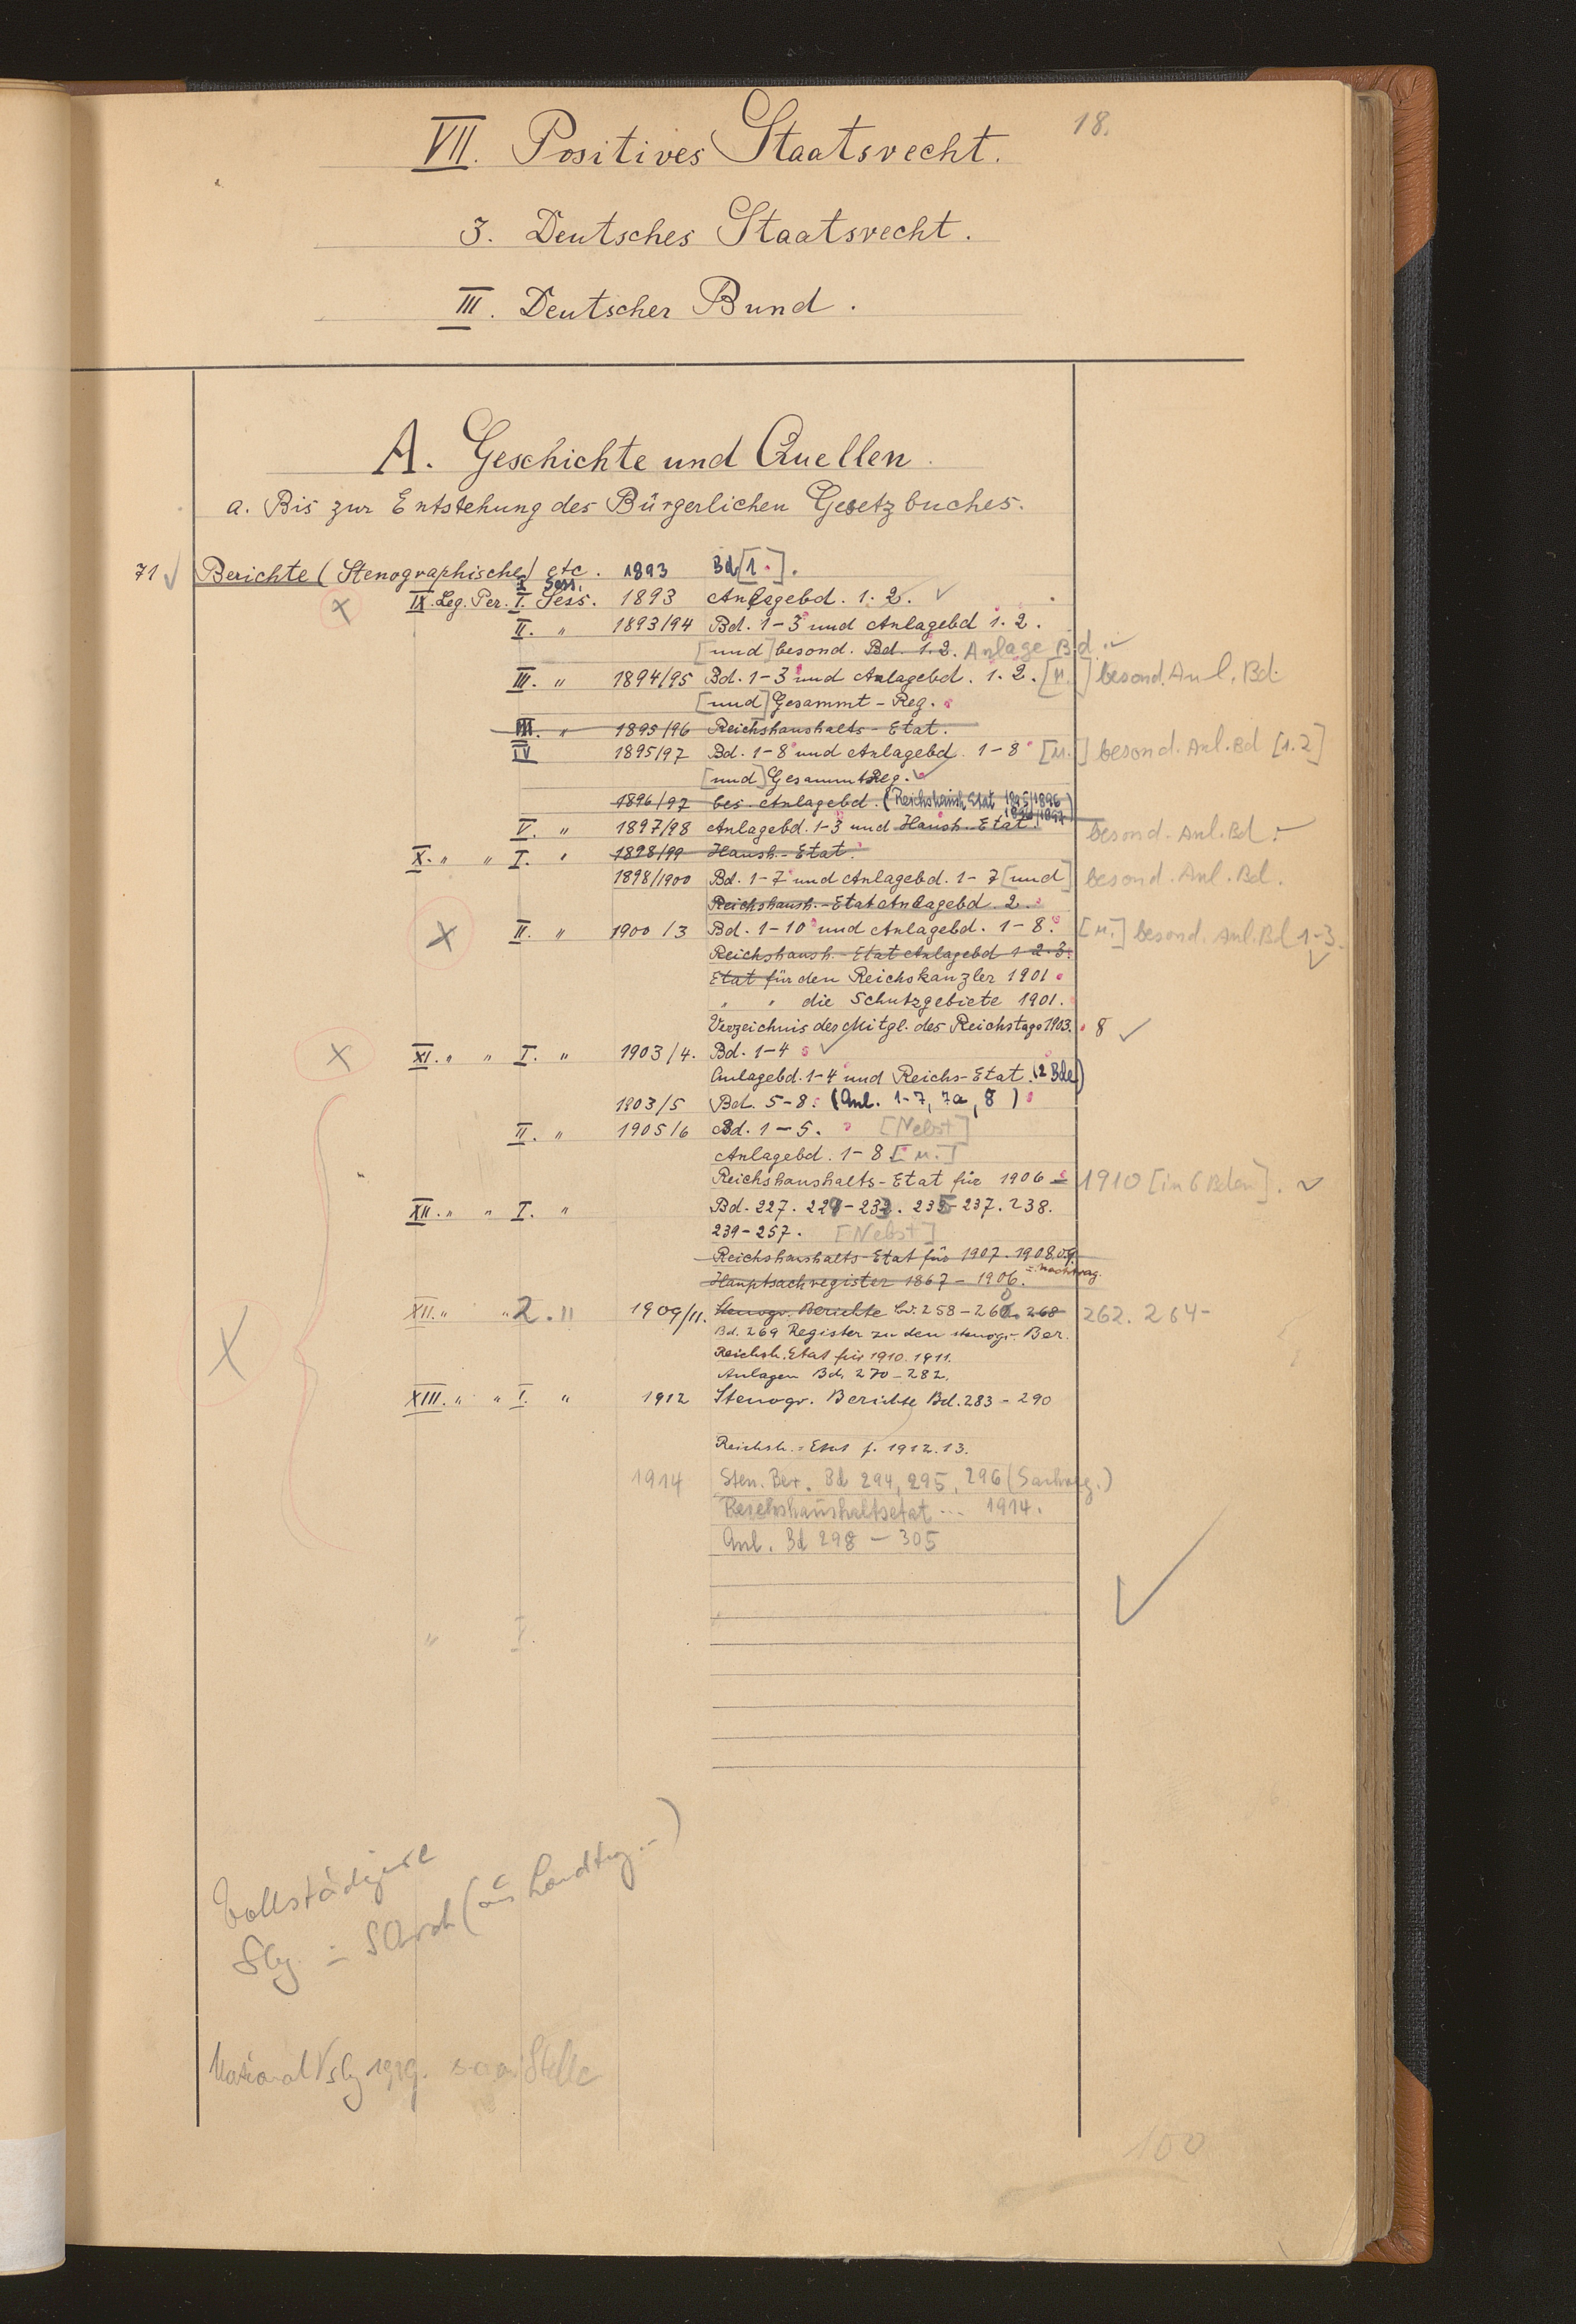 18.
VII. Positives Staatsrecht.
3. Deutsches Staatsrecht.
III. Deutscher Bund.
A. Geschichte und Quellen.
a. Bis zur Entstehung des Bürgerlichen Gesetzbuches.
71 Berichte (Stenographische) etc. 1893 Bd [1.].
I Sess.
IX. Leg. Per. I. Sess. 1893 Anlagebd. 1. 2.
II. " 1893/94 Bd. 1-3 und Anlagebd 1. 2.
[und] besond. Bd. 1. 2. Anlage Bd.
III. " 1894/95 Bd. 1-3 und Anlagebd. 1. 2. [u.] besond. Anl. Bd.
[und] Gesammt-Reg.
III. " 1895/96 Reichshaushalts-Etat.
IV 1895/97 Bd. 1-8 und Anlagebd. 1-8 [u.] besond. Anl. Bd [1. 2]
[und] Gesammtreg.
1896/97 bes. Anlagebd. (Reichshaush. Etat 1895/1896
1896/1897)
V. " 1897/98 Anlagebd. 1-3 und Haush. Etat. besond. Anl. Bd.
X. " " I. " 1898/99 Haush.-Etat.
1898/1900 Bd. 1-7 und Anlagebd. 1-7 [und] besond. Anl. Bd.
Reichshaush.-Etat Anlagebd. 2.
II. " 1900/3 Bd. 1-10 und Anlagebd. 1-8. [u.] besond. Anl. Bd 1-3.
Reichshaush.-Etat Anlagebd 1-2-3.
Etat für den Reichskanzler 1901
" " die Schutzgebiete 1901.
Verzeichnis des Mitgl. des Reichstags 1903. 8
XI. " " I. " 1903/4. Bd. 1-4
Anlagebd. 1-4 und Reichs-Etat. (2 Bde)
1903/5 Bd. 5-8. (Anl. 1-7, 7a, 8)
II. " 1905/6 Bd. 1-5. [Nebst]
Anlagebd. 1-8 [u.]
Reichshaushalts-Etat für 1906 - 1910 [in 6 Bden].
XII. " " I. " Bd. 227. 229-233. 235-237. 238.
239-257. [Nebst]
Reichshaushalts-Etat für 1907. 1908. 09.
= Nachtrag.
Hauptsachregister 1867-1906.
XII. " " 2. " 1909/11. Stenogr. Berichte Bd. 258-260. 268 262. 264-
Bd. 269 Register zu den stenogr. Ber.
Reichsh. Etat für 1910. 1911.
Anlagen Bd. 270-282.
XIII. " " I. " 1912 Stenogr. Berichte Bd. 283-290
Reichsh.=Etat f. 1912. 13.
1914 Sten. Ber. Bd 294, 295, 296 (Sachreg.)
Reichshaushaltsetat ... 1914.
Anl. Bd 298-305
" I.
100